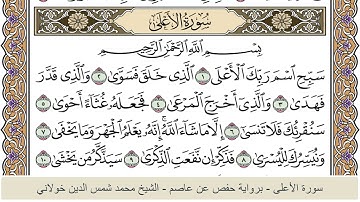 سُورَةُ الأَعْلَى
بِسْمِ اللَّهِ الرَّحْمَٰنِ الرَّحِيمِ
سَبِّحِ اسْمَ رَبِّكَ الْأَعْلَى ١ الَّذِي خَلَقَ فَسَوَّىٰ ٢ وَالَّذِي قَدَّرَ
فَهَدَىٰ ٣ وَالَّذِي أَخْرَجَ الْمَرْعَىٰ ٤ فَجَعَلَهُ غُثَاءً أَحْوَىٰ ٥
سَنُقْرِئُكَ فَلَا تَنسَىٰ ٦ إِلَّا مَا شَاءَ اللَّهُ إِنَّهُ يَعْلَمُ الْجَهْرَ وَمَا يَخْفَىٰ ٧
وَنُيَسِّرُكَ لِلْيُسْرَىٰ ٨ فَذَكِّرْ إِن نَّفَعَتِ الذِّكْرَىٰ ٩ سَيَذَّكَّرُ مَن يَخْشَىٰ ١٠
سورة الأعلى - برواية حفص عن عاصم - الشيخ محمد شمس الدين خولاني